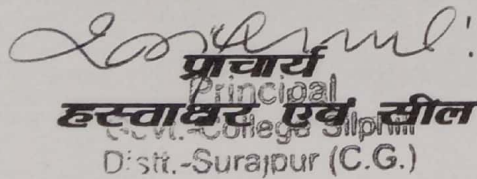 प्राचार्य
Principal
हस्ताक्षर एवं सील
Govt.-College Silphili
Distt.-Surajpur (C.G.)